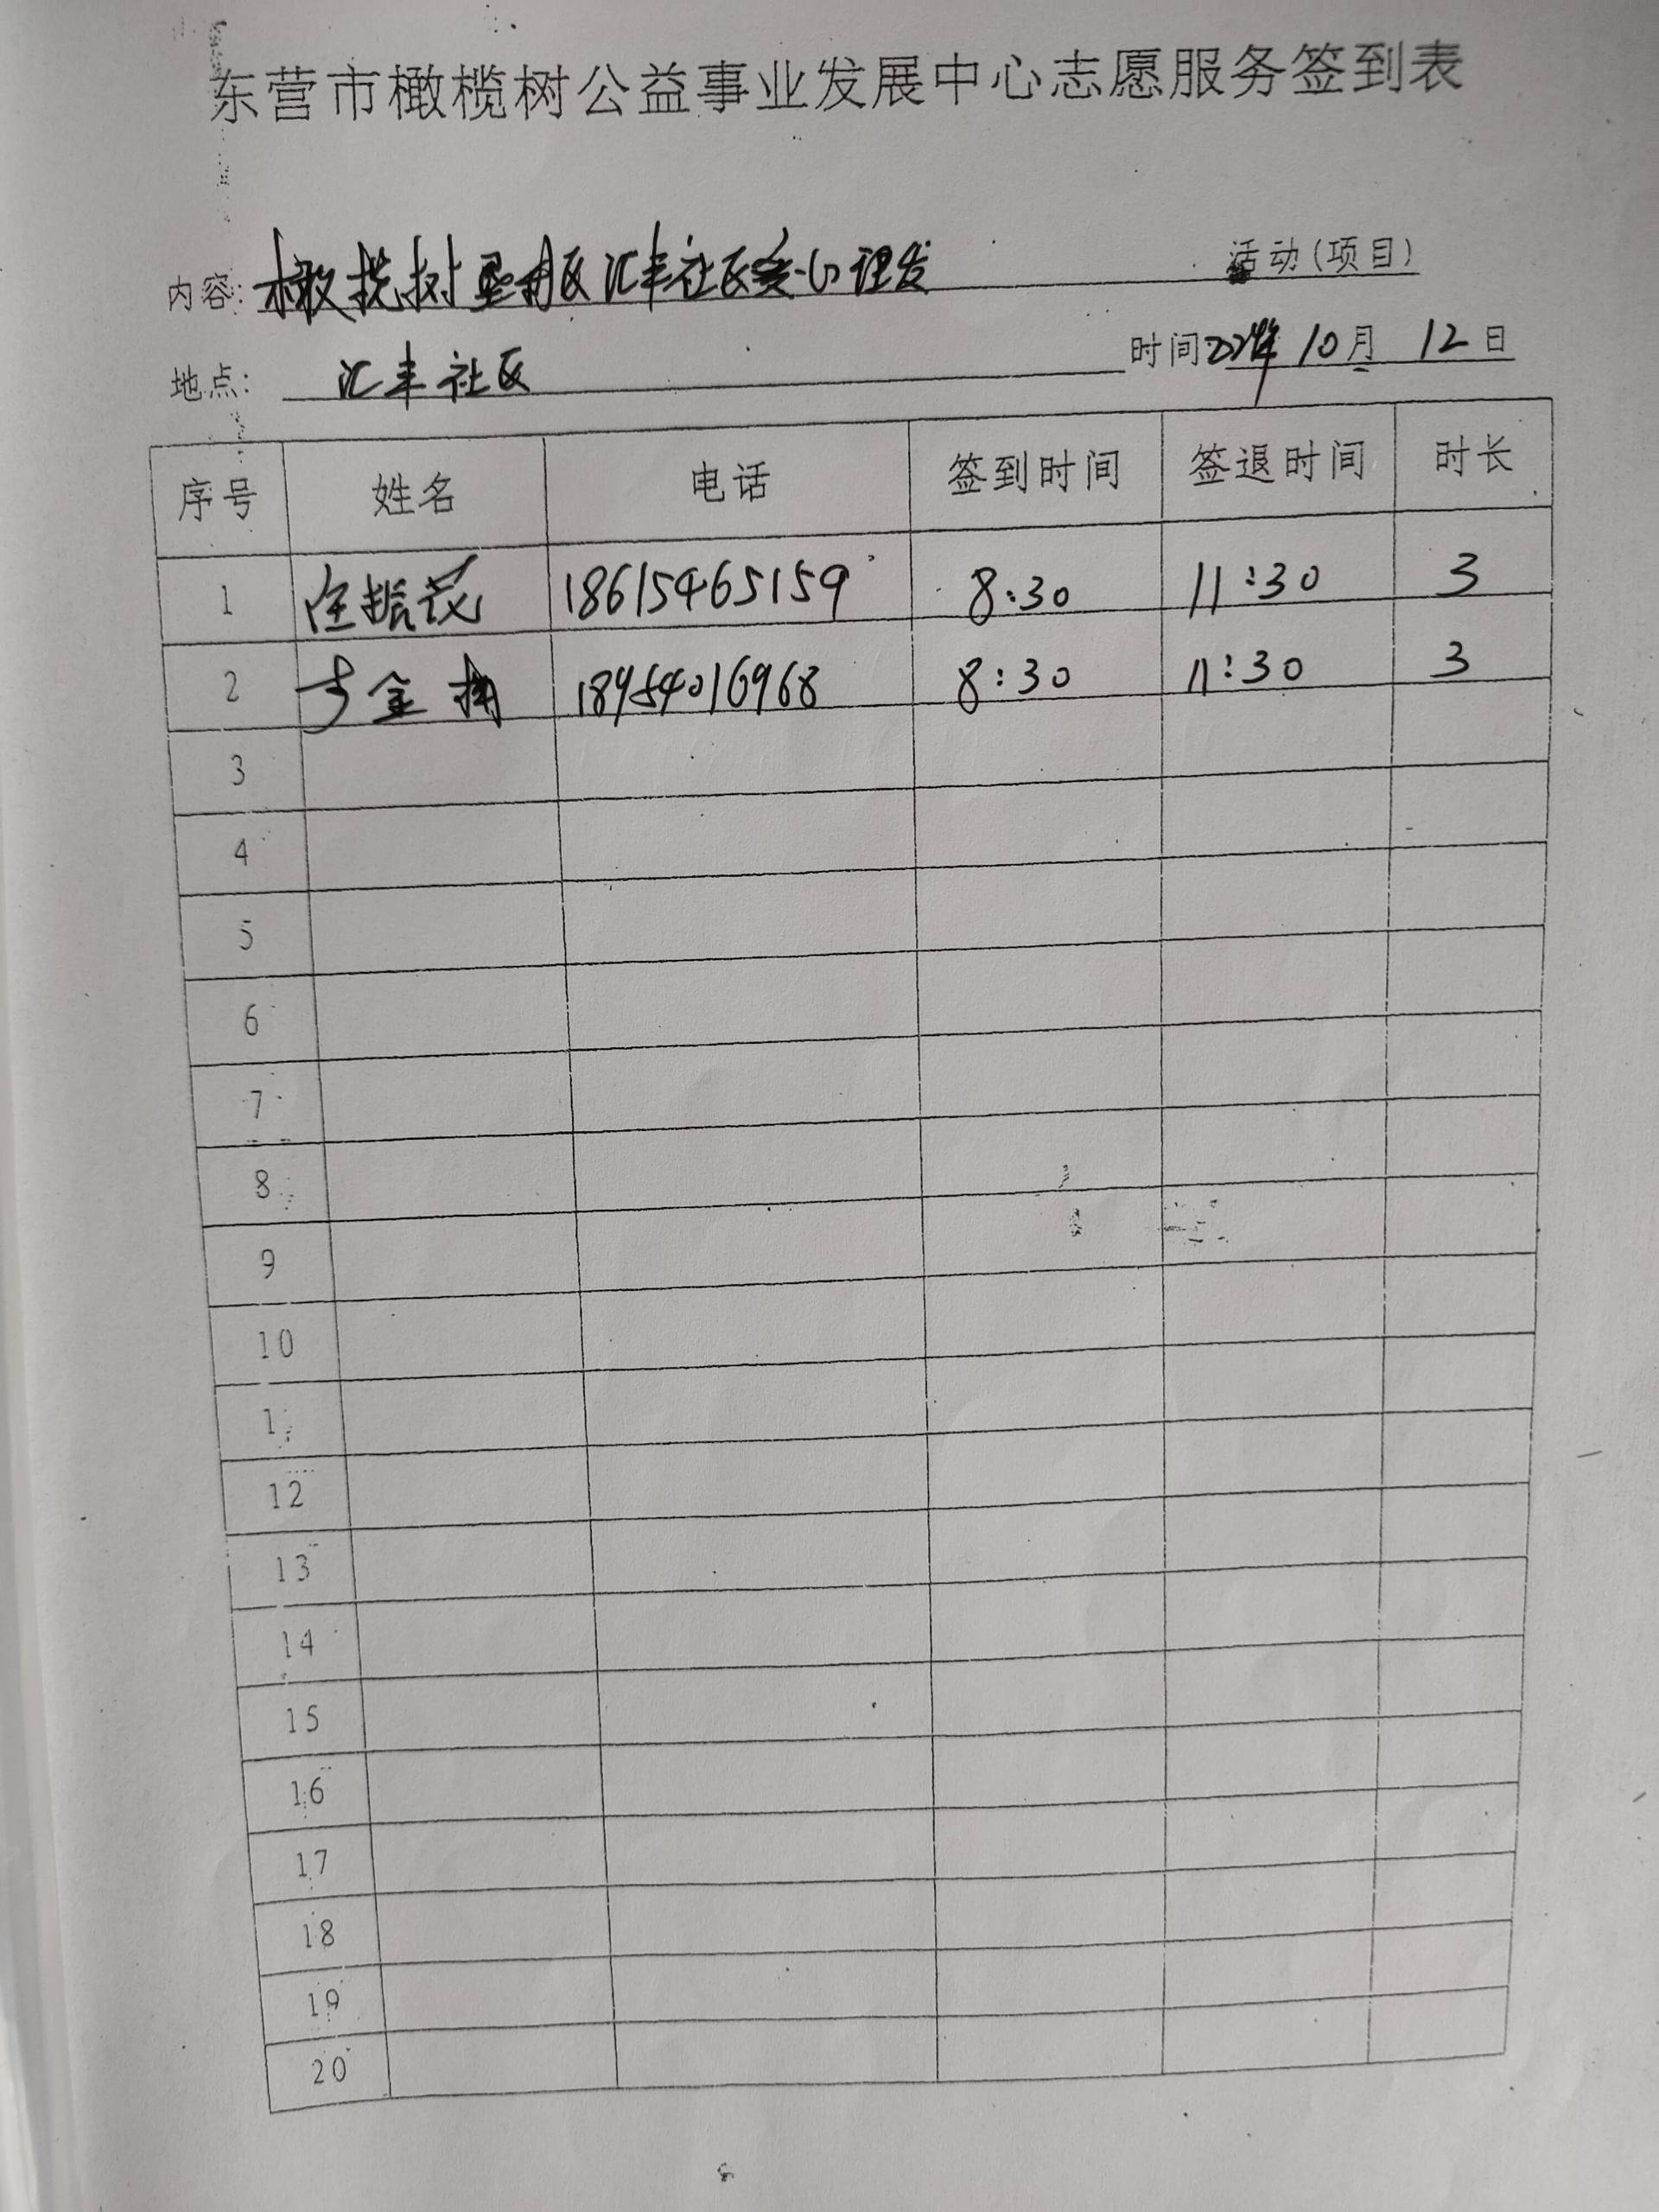 东营市橄榄树公益事业发展中心志愿服务签到表
内容: 橄榄树垦利区汇丰社区爱心理发 活动(项目)
地点: 汇丰社区 时间 年 10月 12日
序号 姓名 电话 签到时间 签退时间 时长
1 18615465159 8:30 11:30 3
2 金 18954016968 8:30 11:30 3
3
4
5
6
7
8
9
10
1
12
13
14
15
16
17
18
19
20